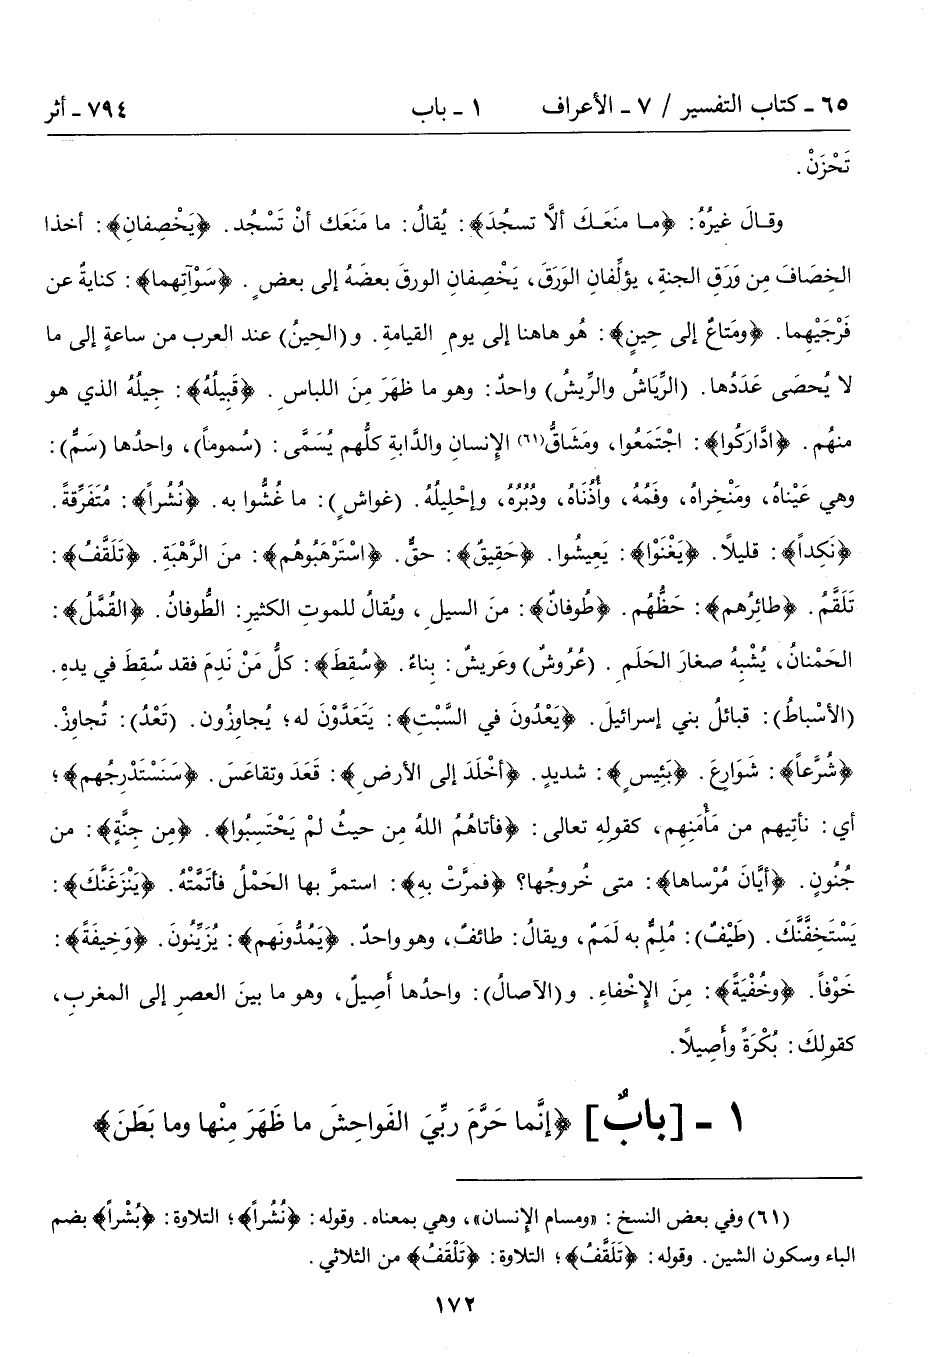 ٦٥ ـ كتاب التفسير / ٧ ـ الأعراف ١ ـ باب ٧٩٤ ـ أثر
تَحْزَنْ .
وقـالَ غيرُهُ: ﴿مـا منَعَـكَ ألاَّ تسجُدَ﴾: يُقالُ: ما مَنَعَك أنْ تَسْجُد. ﴿يَخْصِفانِ﴾: أخذا
الخِصَافَ مِن وَرَقِ الجنةِ، يؤلِّفانِ الوَرَقَ، يَخْصِفانِ الورقَ بعضَهُ إلى بعضٍ. ﴿سَوْآتِهما﴾: كنايةٌ عن
فَرْجَيْهِما. ﴿ومَتاعٌ إلى حِينٍ﴾: هُو هاهنا إلى يومِ القيامةِ. و(الحِينُ) عند العرب من ساعةٍ إلى ما
لا يُحصَى عَدَدُها. (الرِّيَاشُ والرِّيشُ) واحدٌ: وهو ما ظهَرَ مِنَ اللباسِ. ﴿قَبِيلُهُ﴾: جِيلُهُ الذي هو
منهُم. ﴿ادَّارَكُوا﴾: اجْتَمَعُوا، ومَشَاقُّ(٦١) الإنسانِ والدَّابةِ كلُّهم يُسَمَّى: (سُموماً)، واحدُها (سَمٌّ):
وهي عَيْناهُ، ومَنْخِراهُ، وفَمُهُ، وأُذُنَاهُ، ودُبُرُهُ، وإحْلِيلُهُ. (غواشٍ): ما غُشُّوا به. ﴿نُشُراً﴾: مُتَفَرِّقةً.
﴿نَكِداً﴾: قليلاً. ﴿يَغْنَوْا﴾: يَعِيشُوا. ﴿حَقِيقٌ﴾: حقٌّ. ﴿اسْتَرْهَبُوهُم﴾: منَ الرَّهْبَةِ. ﴿تَلَقَّفُ﴾:
تَلَقَّمُ. ﴿طائِرُهم﴾: حَظُّهُم. ﴿طُوفانٌ﴾: منَ السيلِ، ويُقالُ للموتِ الكثيرِ: الطُّوفانُ. ﴿القُمَّلُ﴾:
الحَمْنانُ، يُشْبِهُ صغارَ الحَلَمِ. (عُرُوشٌ) وعَريشٌ: بناءٌ. ﴿سُقِطَ﴾: كلُّ مَنْ نَدِمَ فقد سُقِطَ في يدهِ.
(الأسْباطُ): قبائلُ بني إسرائيلَ. ﴿يَعْدُونَ في السَّبْتِ﴾: يَتَعَدَّوْنَ له؛ يُجاوِزُون. (تَعْدُ): تُجاوِزْ.
﴿شُرَّعاً﴾: شَوَارِعَ. ﴿بَئِيسٍ﴾: شديدٍ. ﴿أخْلَدَ إلى الأرضِ﴾: قَعَدَ وتقاعَسَ. ﴿سَنَسْتَدْرِجُهم﴾؛
أي: نأتيهم من مَأْمَنِهِم، كقولِهِ تعالى: ﴿فأتاهُمُ اللهُ مِن حيثُ لمْ يَحْتَسِبُوا﴾. ﴿مِن جِنَّةٍ﴾: من
جُنُونٍ. ﴿أيَّانَ مُرْساها﴾: متى خُروجُها؟ ﴿فمرَّتْ بهِ﴾: استمرَّ بها الحَمْلُ فأتَمَّتْهُ. ﴿يَنْزَغَنَّكَ﴾:
يَسْتَخِفَّنَّكَ. (طَيْفٌ): مُلِمٌّ به لَمَمٌ، ويقالُ: طائفٌ، وهو واحدٌ. ﴿يَمُدُّونَهم﴾: يُزَيِّنُونَ. ﴿وَخِيفَةً﴾:
خَوْفاً. ﴿وخُفْيَةً﴾: مِنَ الإخْفاءِ. و(الآصالُ): واحدُها أَصِيلٌ، وهو ما بينَ العصرِ إلى المغربِ،
كقولِكَ: بُكْرَةً وأَصِيلاً.
١ ـ [بابٌ] ﴿إنَّما حَرَّمَ ربِّيَ الفَواحِشَ ما ظَهَرَ مِنْها وما بَطَنَ﴾
(٦١) وفي بعض النسخ: «ومسام الإنسان»، وهي بمعناه. وقوله: ﴿نُشُراً﴾؛ التلاوة: ﴿بُشْراً﴾ بضم
الباء وسكون الشين. وقوله: ﴿تَلَقَّفُ﴾؛ التلاوة: ﴿تَلْقَفُ﴾ من الثلاثي.
١٧٢